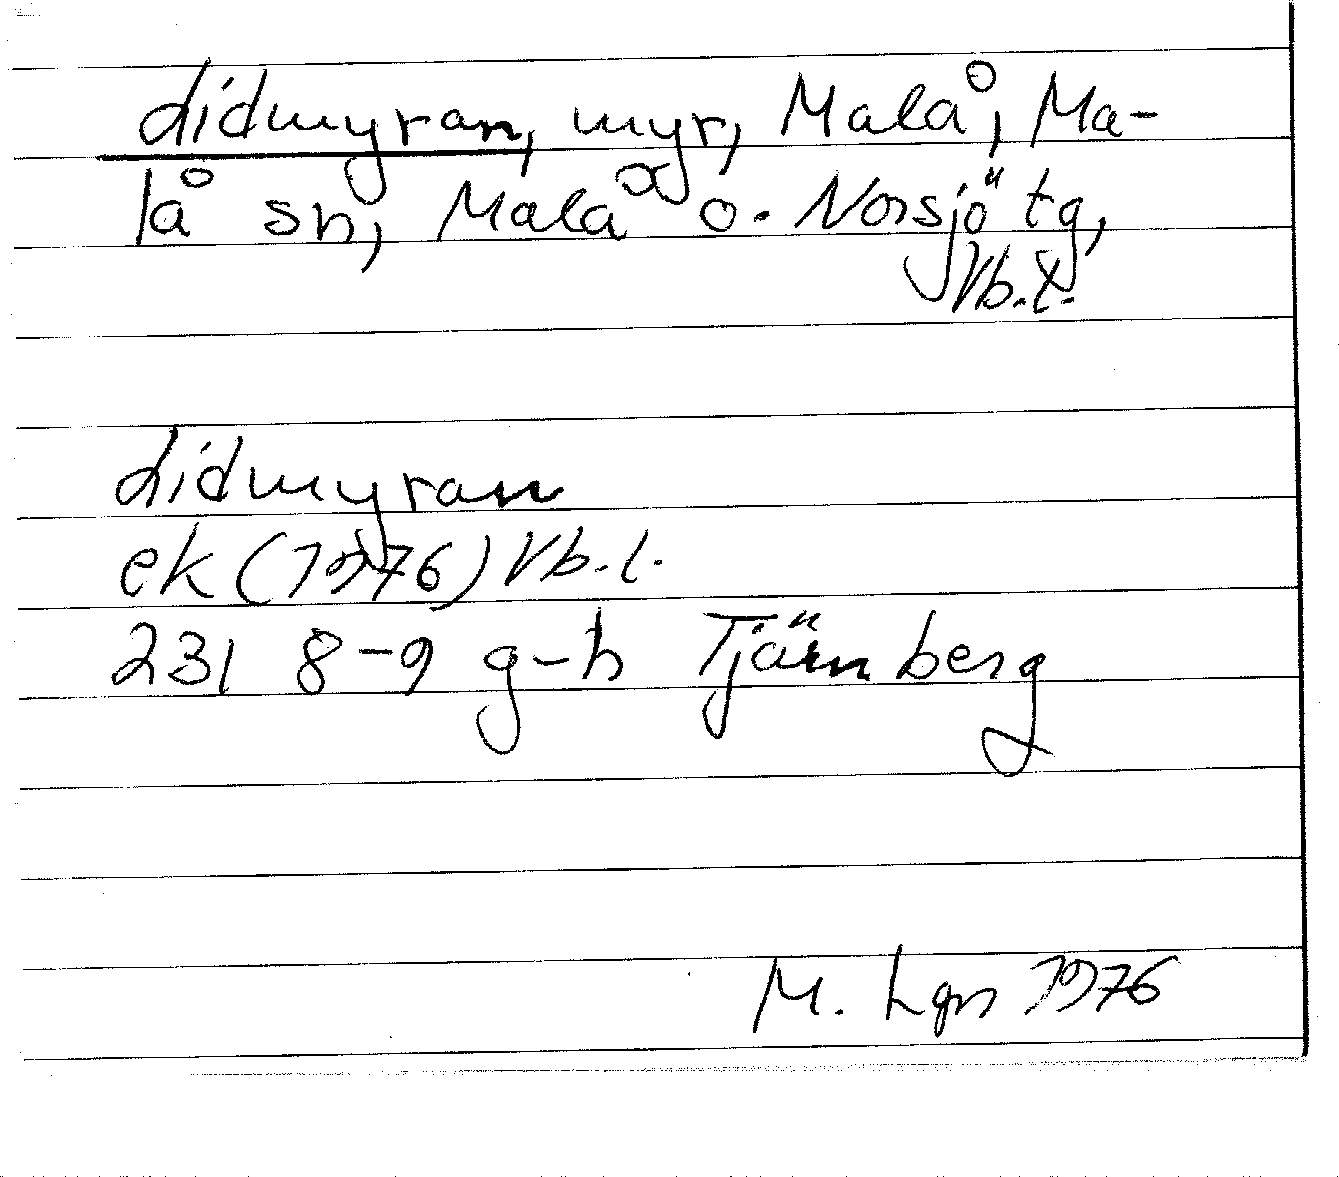 Lidmyran, myr, Malå, Ma-
lå sn, Malå o. Norsjö tg,
Vb.l.
Lidmyran
ek (1976) Vb.l.
231 8-9 g-h Tjärnberg
M. Lgn 1976